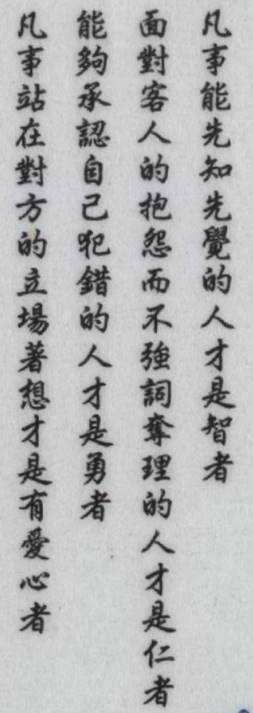 凡事能先知先覺的人才是智者
面對客人的抱怨而不強詞奪理的人才是仁者
能夠承認自己犯錯的人才是勇者
凡事站在對方的立場著想才是有愛心者